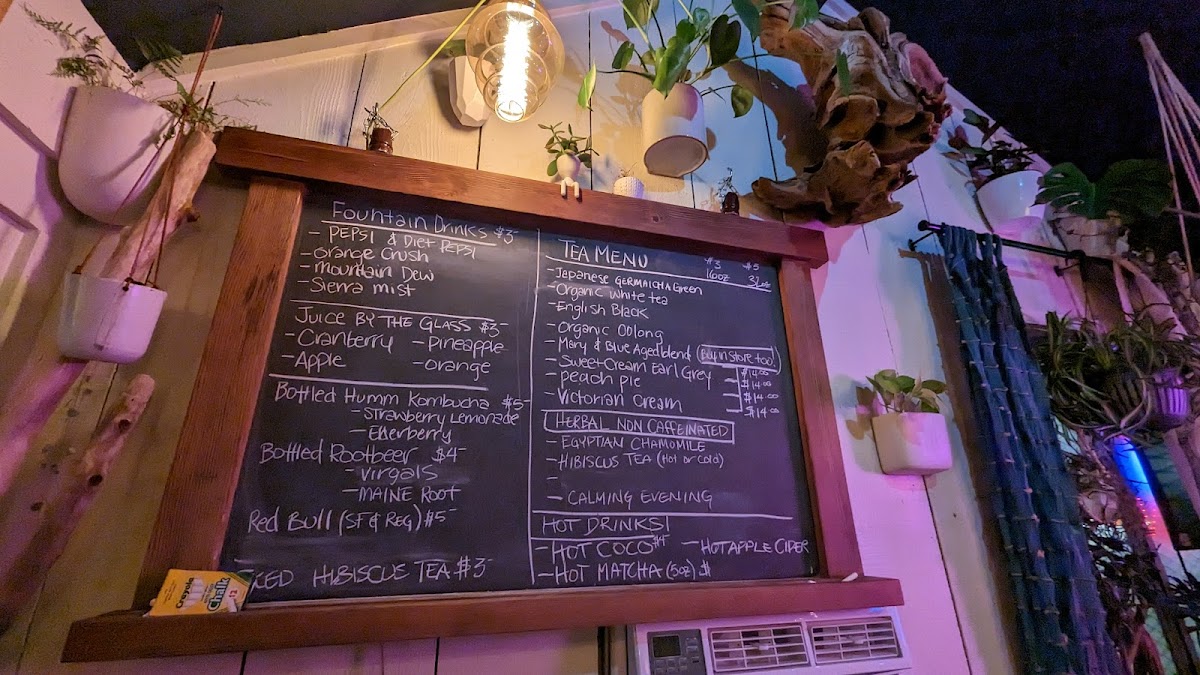 Fountain Drinks $3
- PEPSI & Diet PEPSI
- Orange Crush
- Mountain Dew
- Sierra mist
Juice By THE GLASS $3
- Cranberry - Pineapple
- Apple - orange
Bottled Humm Kombucha $5
- Strawberry Lemonade
- Elderberry
Bottled Rootbeer $4
- Virgals
- MAINE ROOT
Red Bull (SF & REG) $5
ICED HIBISCUS TEA $3
TEA MENU $3 $5
16oz 32oz
- Japanese GERMAICHA Green
- Organic White tea
- English Black
- Organic Oolong
- Mary & Blue Aged blend (Buy in Store too!)
- Sweet Cream Earl Grey $14.00
- peach pie $14.00
- Victorian Cream $14.00
$14.00
HERBAL NON CAFFEINATED
- EGYPTIAN CHAMOMILE
- HIBISCUS TEA (Hot or Cold)
-
- CALMING EVENING
HOT DRINKS!
- HOT COCO $4 - HOT APPLE CIDER
- HOT MATCHA (5oz) $
Crayola
Chalk
12